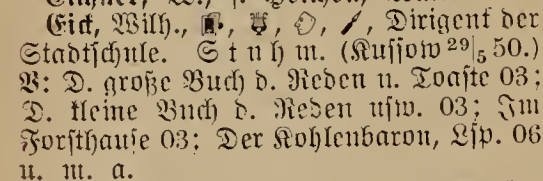 Eick, Wilh., Dirigent der
Stadtschule. Stuhm. (Kussow 29|5 50.)
B: D. große Buch d. Reden u. Toaste 03;
D. kleine Buch d. Reden usw. 03; Im
Forsthause 03; Der Kohlenbaron, Lsp. 06
u. m. a.